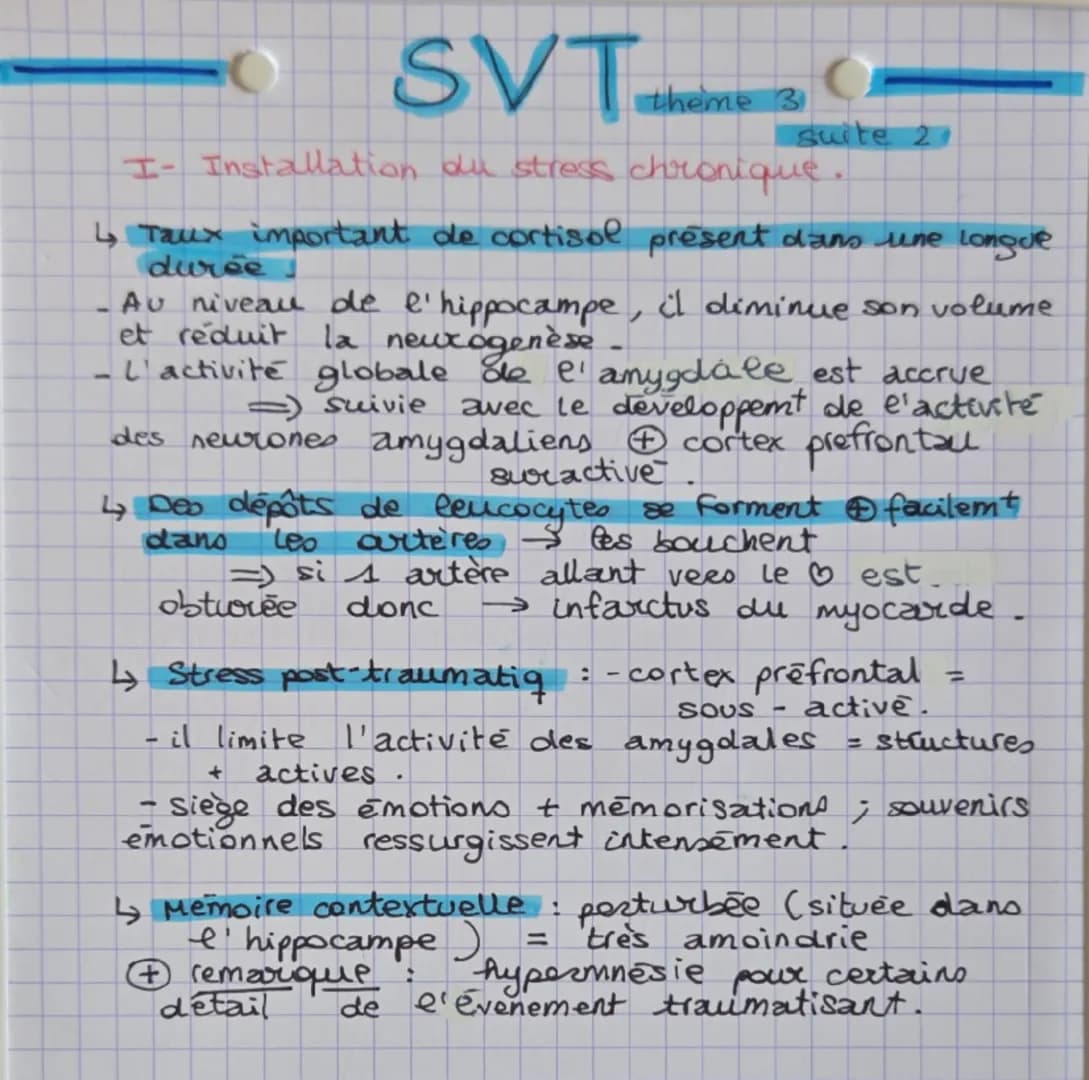 SVT thème 3
suite 2
I- Installation du stress chronique.
↳ Taux important de cortisol présent dans une longue
durée :
- Au niveau de l'hippocampe, il diminue son volume
et réduit la neurogenèse.
- L'activité globale de l'amygdale est accrue
=> suivie avec le développemt de l'activité
des neurones amygdaliens ⊕ cortex prefrontau
suractivé.
↳ Des dépôts de leucocytes se forment ⊕ facilemt
dans les artères → les bouchent
=> si 1 artère allant vers le ♡ est
obturée donc → infarctus du myocarde.
↳ Stress post-traumatiq : - cortex préfrontal =
sous - activé.
- il limite l'activité des amygdales = structures
+ actives.
- siège des émotions + mémorisations ; souvenirs
émotionnels ressurgissent intensément.
↳ Mémoire contextuelle : perturbée (située dans
l'hippocampe) = très amoindrie
⊕ remarque : hypermnésie pour certains
détail de l'évènement traumatisant.